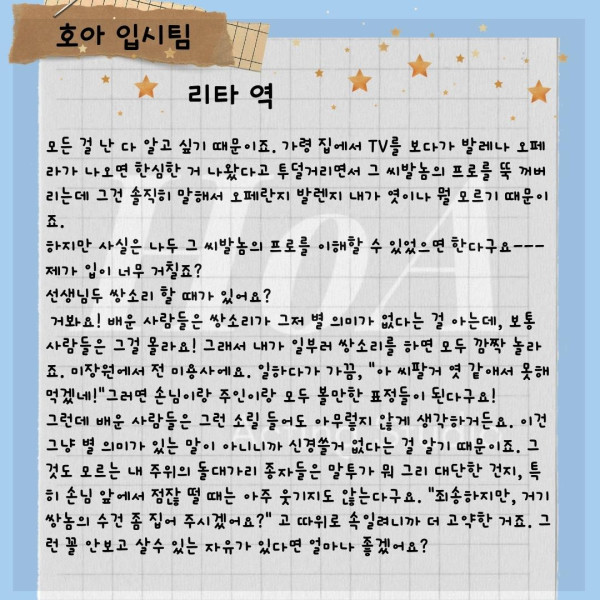 호아 입시팀
리타 역
모든 걸 난 다 알고 싶기 때문이죠. 가령 집에서 TV를 보다가 발레나 오페
라가 나오면 한심한 거 나왔다고 투덜거리면서 그 씨발놈의 프로를 뚝 꺼버
리는데 그건 솔직히 말해서 오페란지 발렌지 내가 엿이나 뭘 모르기 때문이
죠.
하지만 사실은 나두 그 씨발놈의 프로를 이해할 수 있었으면 한다구요---
제가 입이 너무 거칠죠?
선생님두 쌍소리 할 때가 있어요?
거봐요! 배운 사람들은 쌍소리가 그저 별 의미가 없다는 걸 아는데, 보통
사람들은 그걸 몰라요! 그래서 내가 일부러 쌍소리를 하면 모두 깜짝 놀라
죠. 미장원에서 전 미용사에요. 일하다가 가끔, "아 씨팔거 엿 같애서 못해
먹겠네!"그러면 손님이랑 주인이랑 모두 볼만한 표정들이 된다구요!
그런데 배운 사람들은 그런 소릴 들어도 아무렇지 않게 생각하거든요. 이건
그냥 별 의미가 있는 말이 아니니까 신경쓸거 없다는 걸 알기 때문이죠. 그
것도 모르는 내 주위의 돌대가리 종자들은 말투가 뭐 그리 대단한 건지, 특
히 손님 앞에서 점잖 떨 때는 아주 웃기지도 않는다구요. "죄송하지만, 거기
쌍놈의 수건 좀 집어 주시겠어요?" 고 따위로 속일려니까 더 고약한 거죠. 그
런 꼴 안보고 살수 있는 자유가 있다면 얼마나 좋겠어요?
HoA